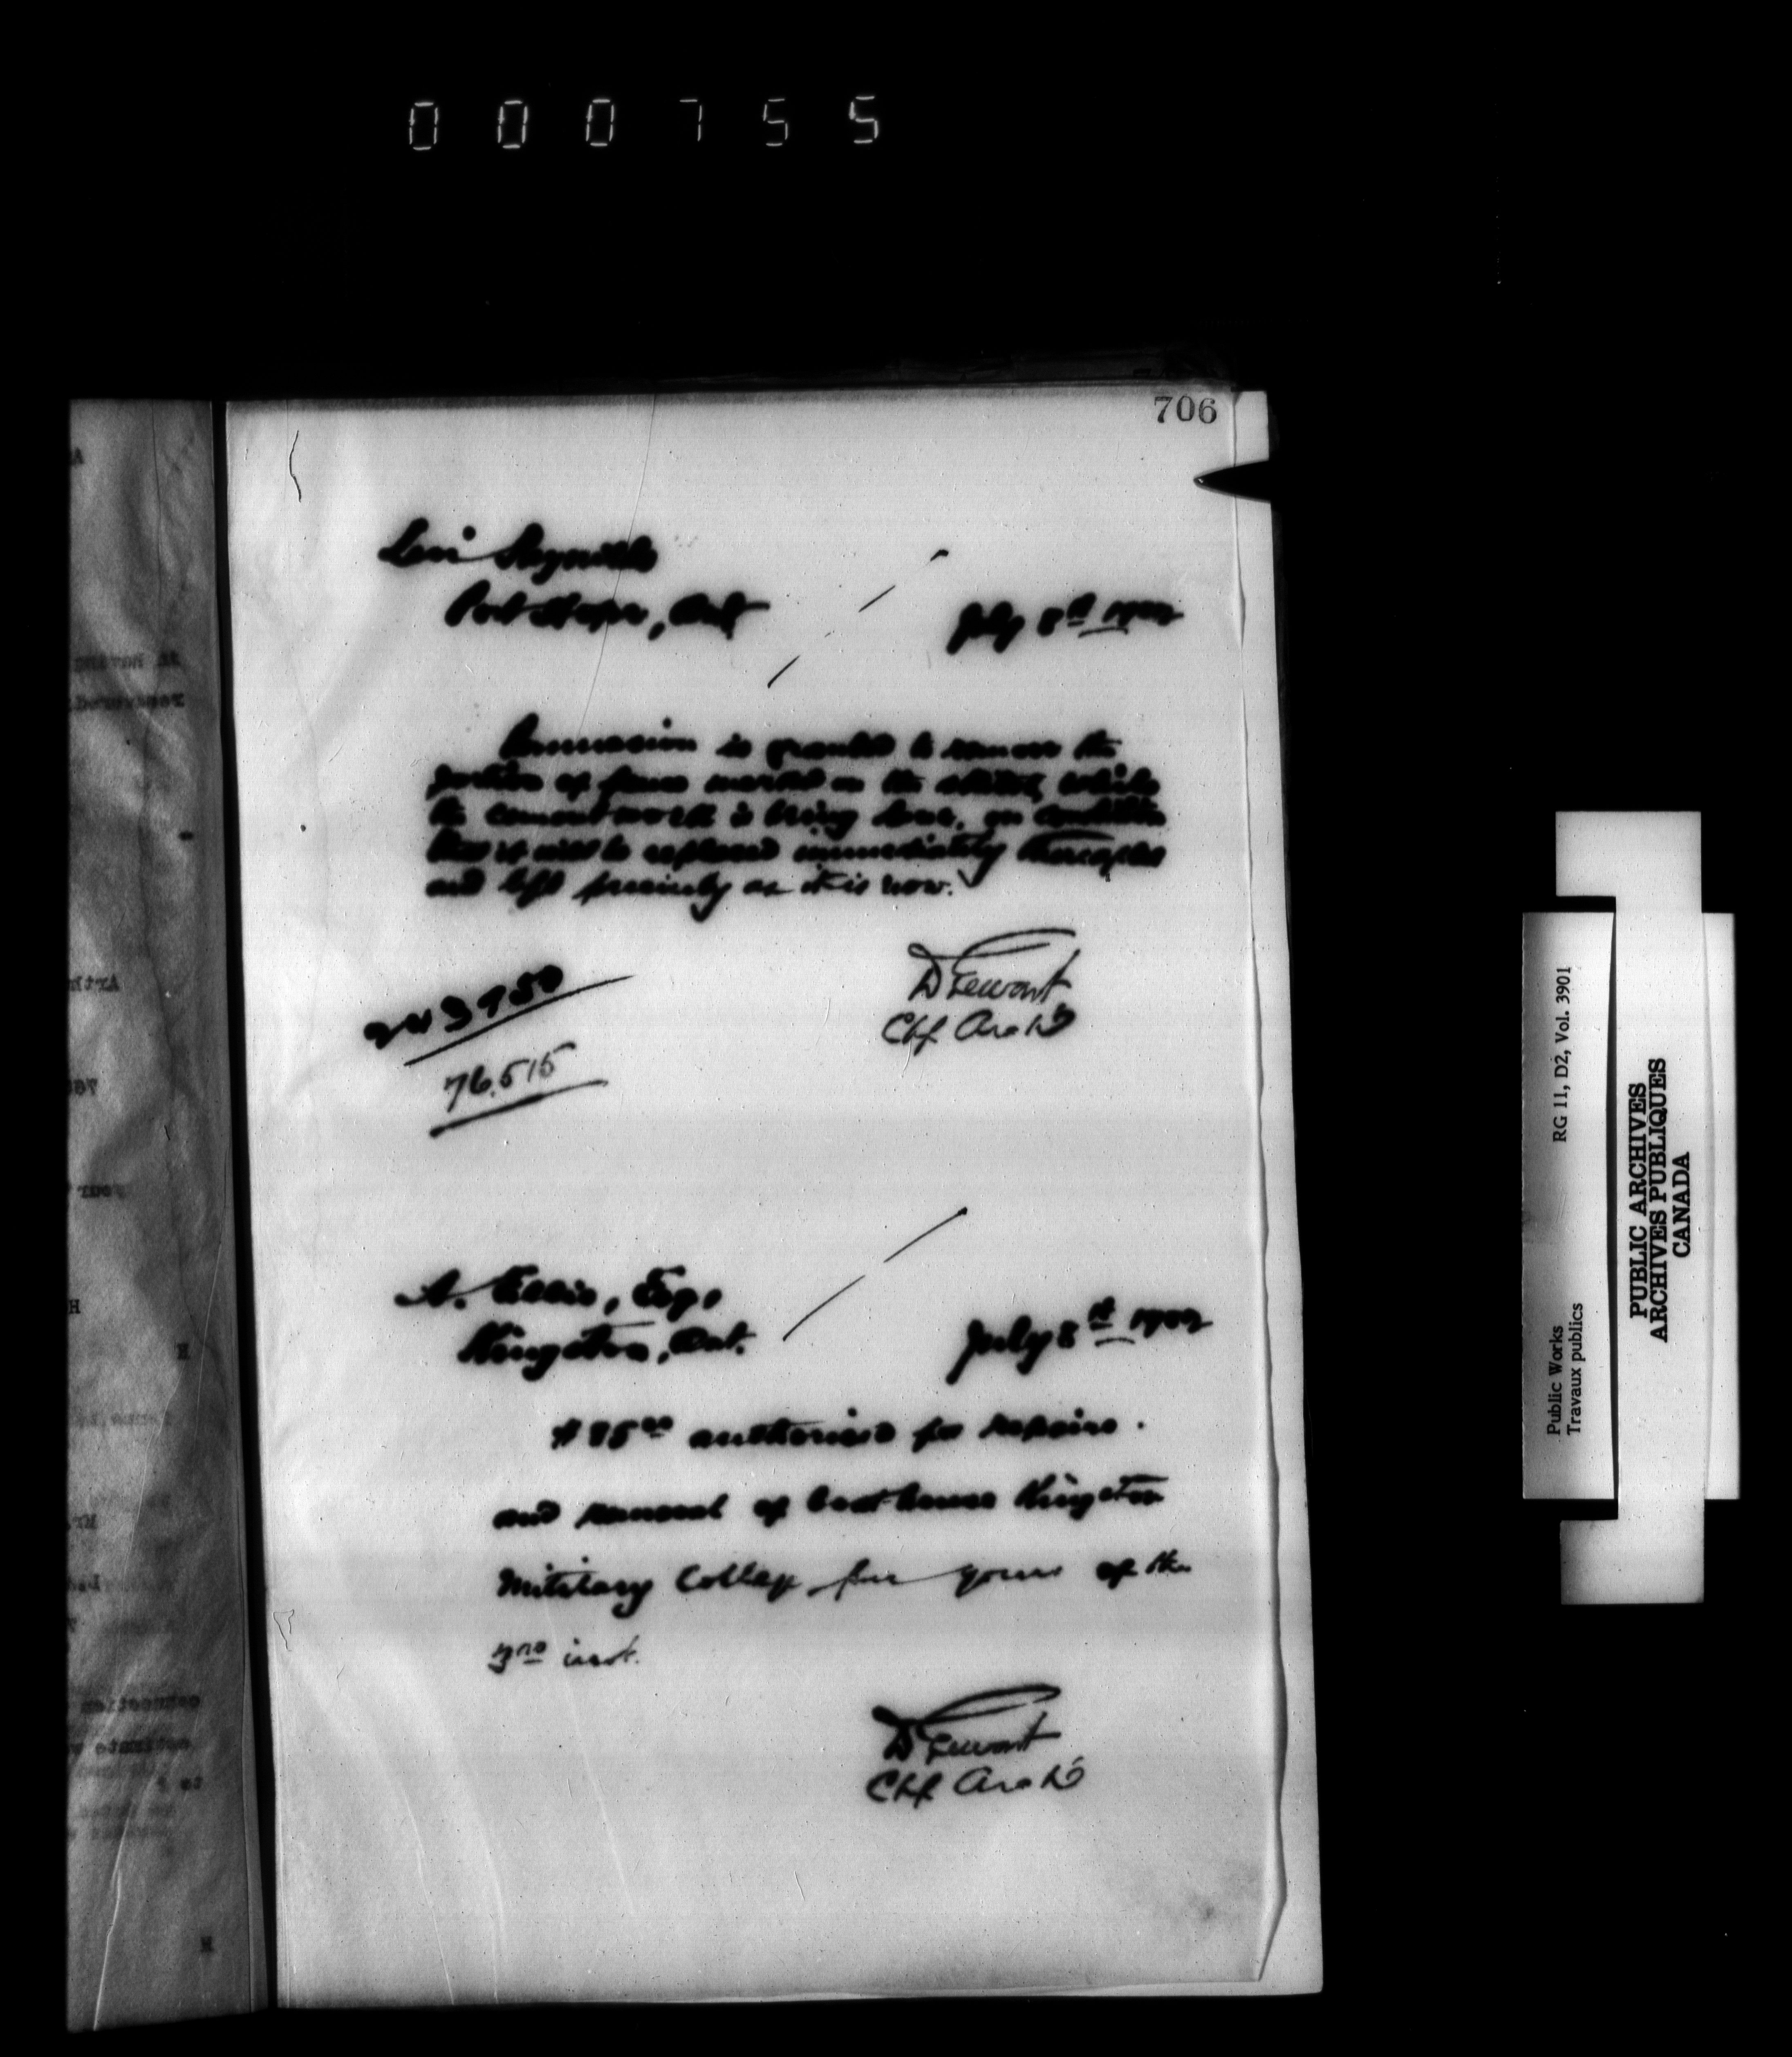 000755
706
Levi Reynolds
Port Hope, Ont
July 8th 1902
Permission is granted to remove the
portion of fence marked on the sketch, while
the cement work is being done, on condition
that it will be replaced immediately thereafter
and left precisely as it is now.
D Ewart
Chf Archt
243750
76.515
A. Ellis, Esq,
Kingston, Ont.
July 8th 1902
$85.00 authorised for repairs.
and removal of boathouse Kingston
Military College for yours of the
3rd inst.
D Ewart
Chf Archt
Public Works
Travaux publics
RG 11, D2, Vol. 3901
PUBLIC ARCHIVES
ARCHIVES PUBLIQUES
CANADA